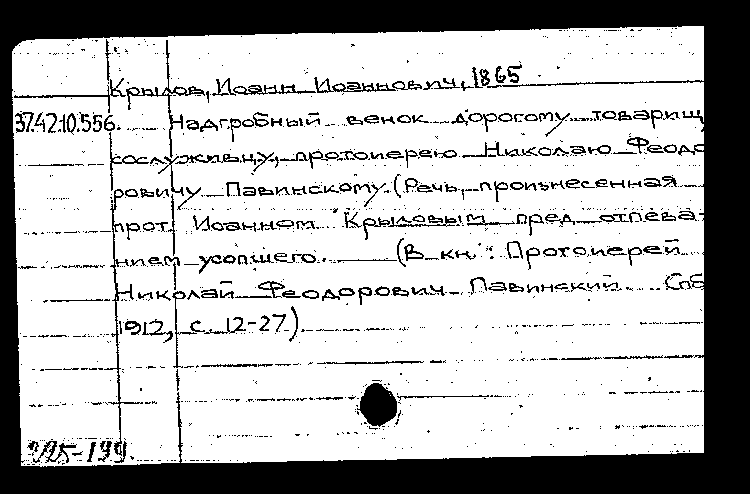 Крылов, Иоанн Иоаннович, 1865
37.42.10.556. Надгробный венок дорогому товарищ
сослуживцу, протоиерею Николаю Феодо
ровичу Павинскому. (Речь, произнесенная
прот. Иоанном Крыловым пред отпева-
нием усопшего. (В кн.: Протоиерей
Николай Феодорович Павинский. Спб
1912, с. 12-27).